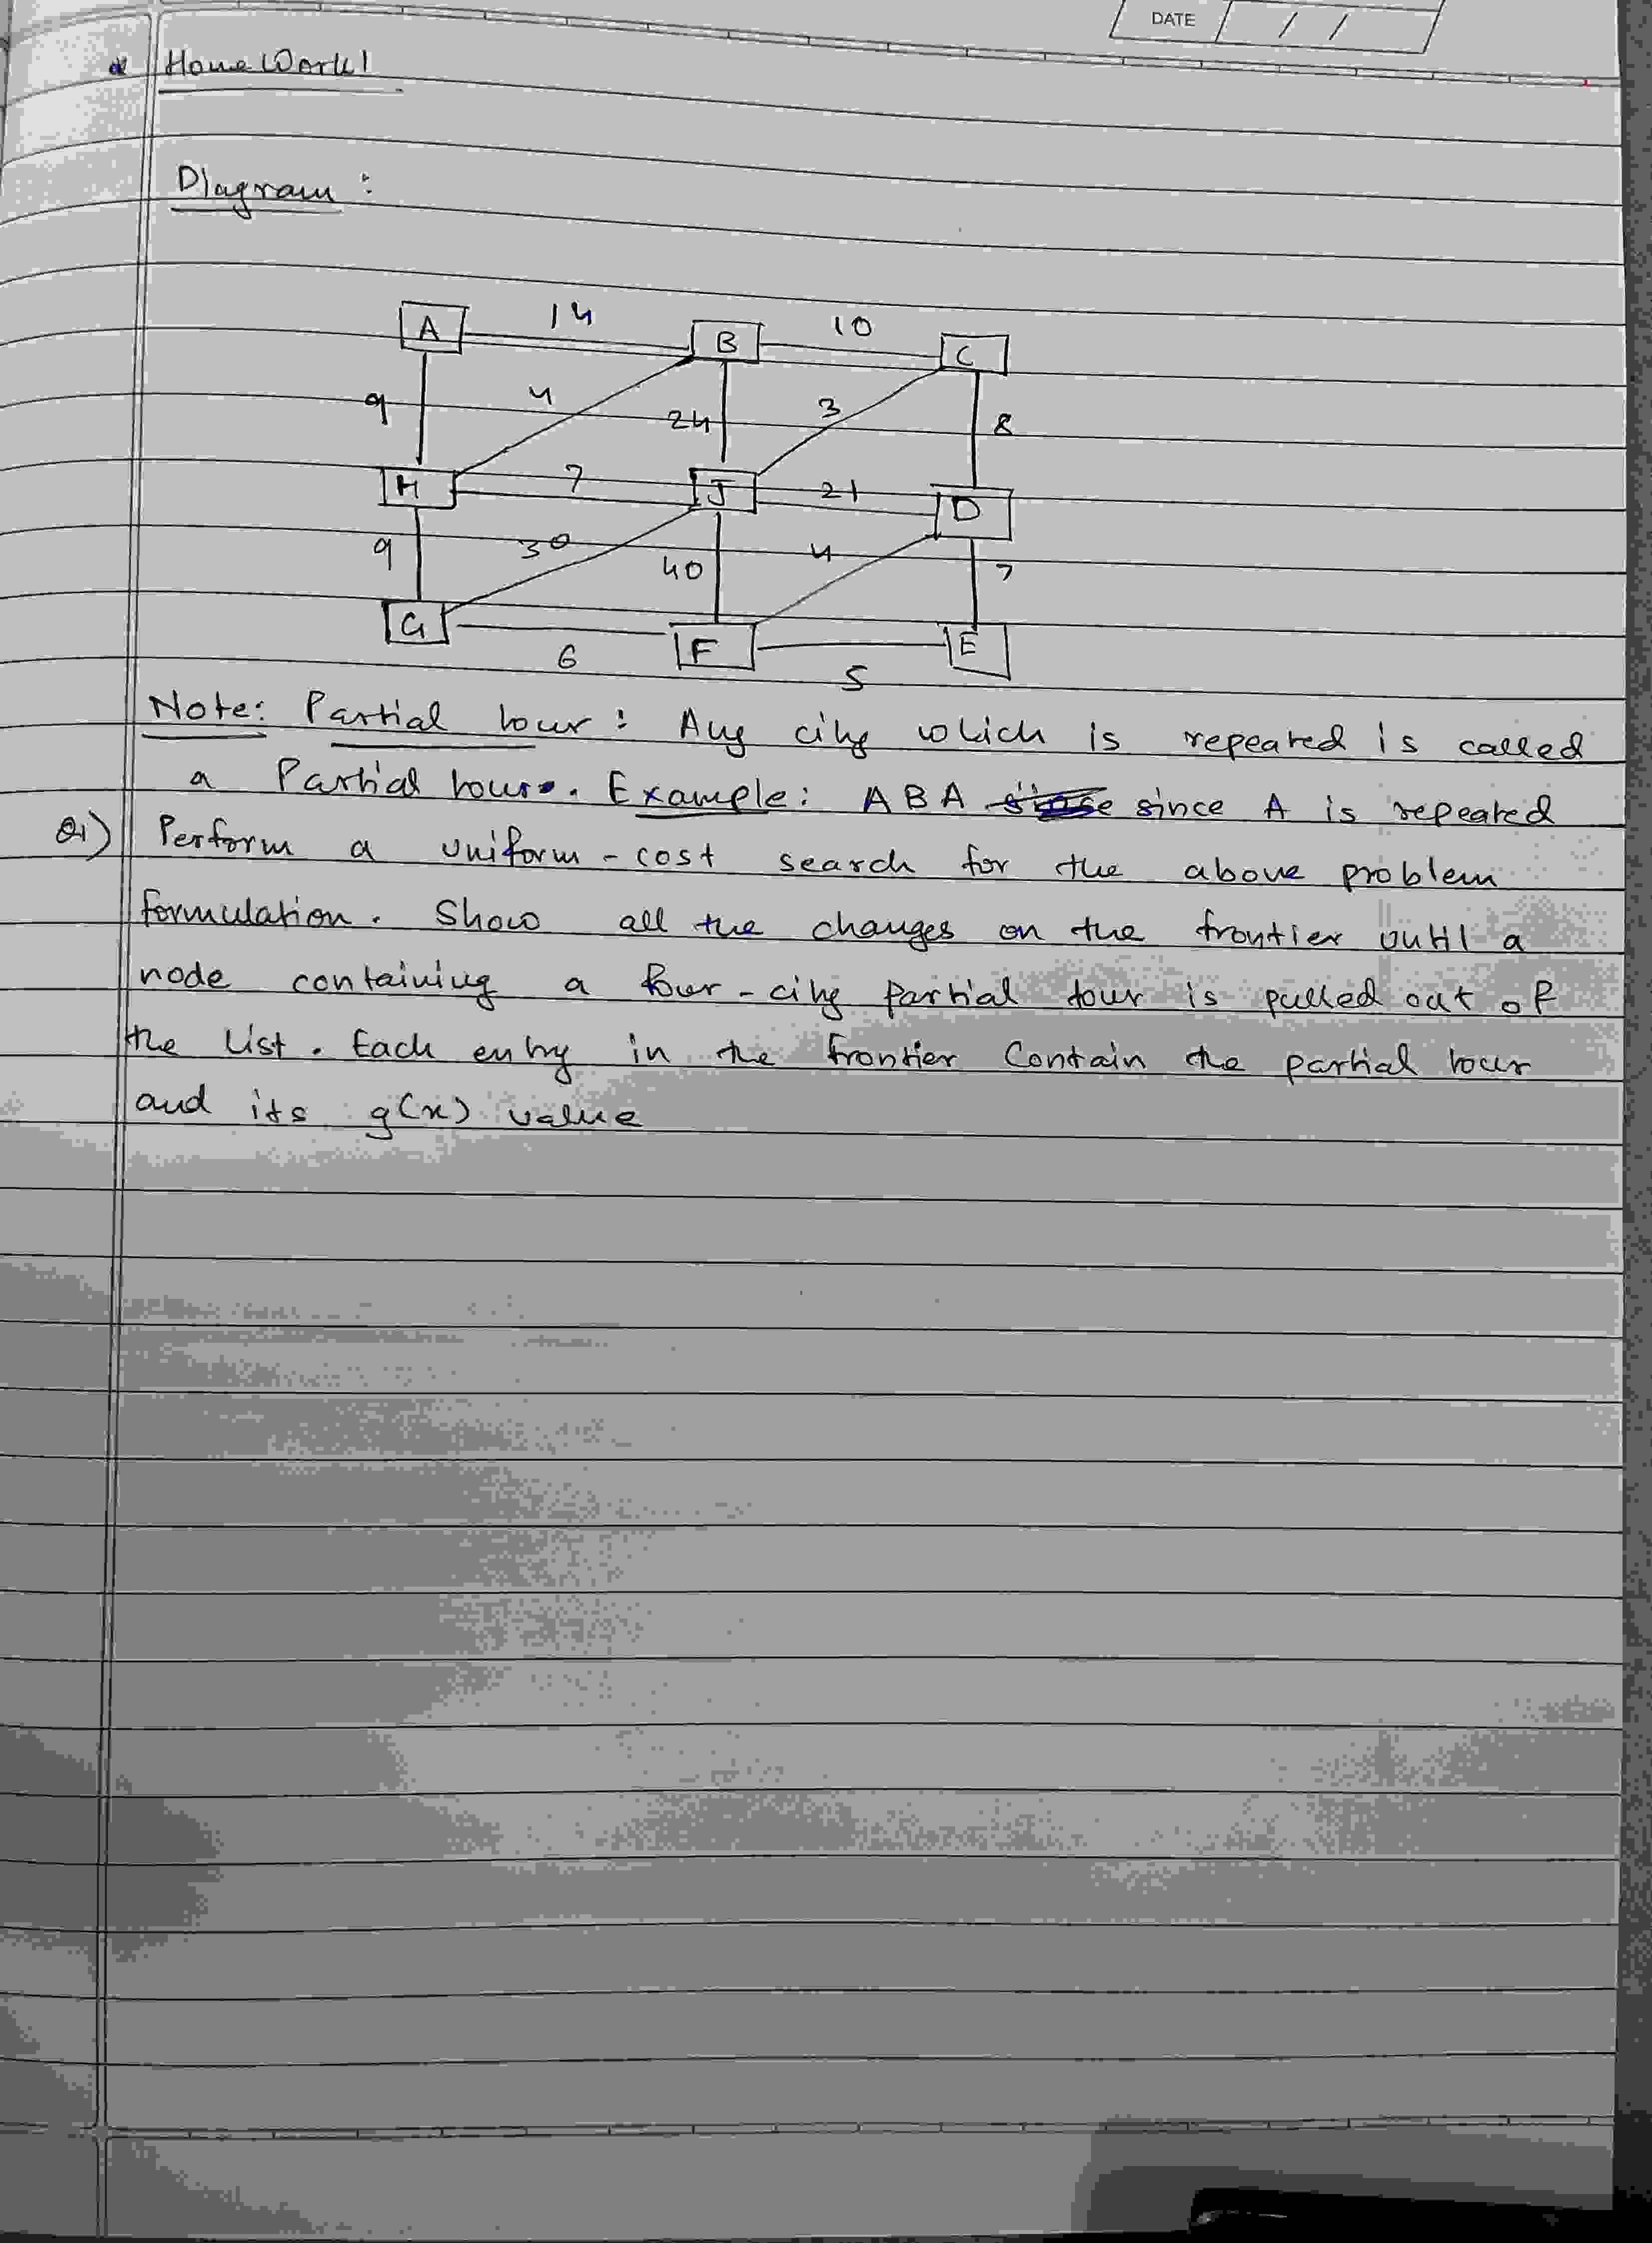 DATE / /
HomeWork1
Diagram :
A 14 B 10 C
9 4 24 3 8
H 7 J 21 D
9 30 40 4 7
G 6 F 5 E
Note: Partial tour : Any city which is repeated is called
a Partial tour. Example: ABA since A is repeated
Q1) Perform a uniform-cost search for the above problem
formulation. Show all the changes on the frontier until a
node containing a four-city partial tour is pulled out of
the list. Each entry in the frontier Contain the partial tour
and its g(x) value